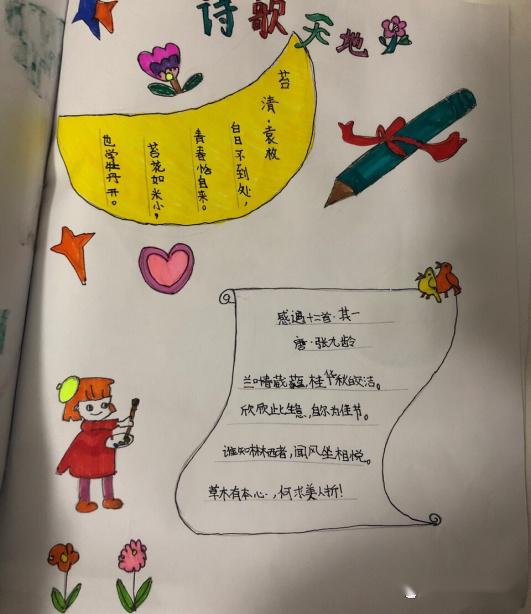 诗歌天地
苔
清·袁枚
白日不到处，
青春恰自来。
苔花如米小，
也学牡丹开。
感遇十二首·其一
唐·张九龄
兰叶春葳蕤，桂华秋皎洁。
欣欣此生意，自尔为佳节。
谁知林栖者，闻风坐相悦。
草木有本心，何求美人折！